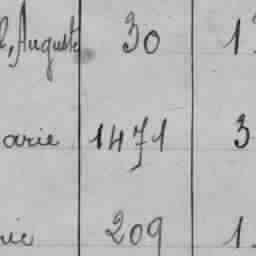 l, Auguste 30 1
arie 1471 3
ie 209 1